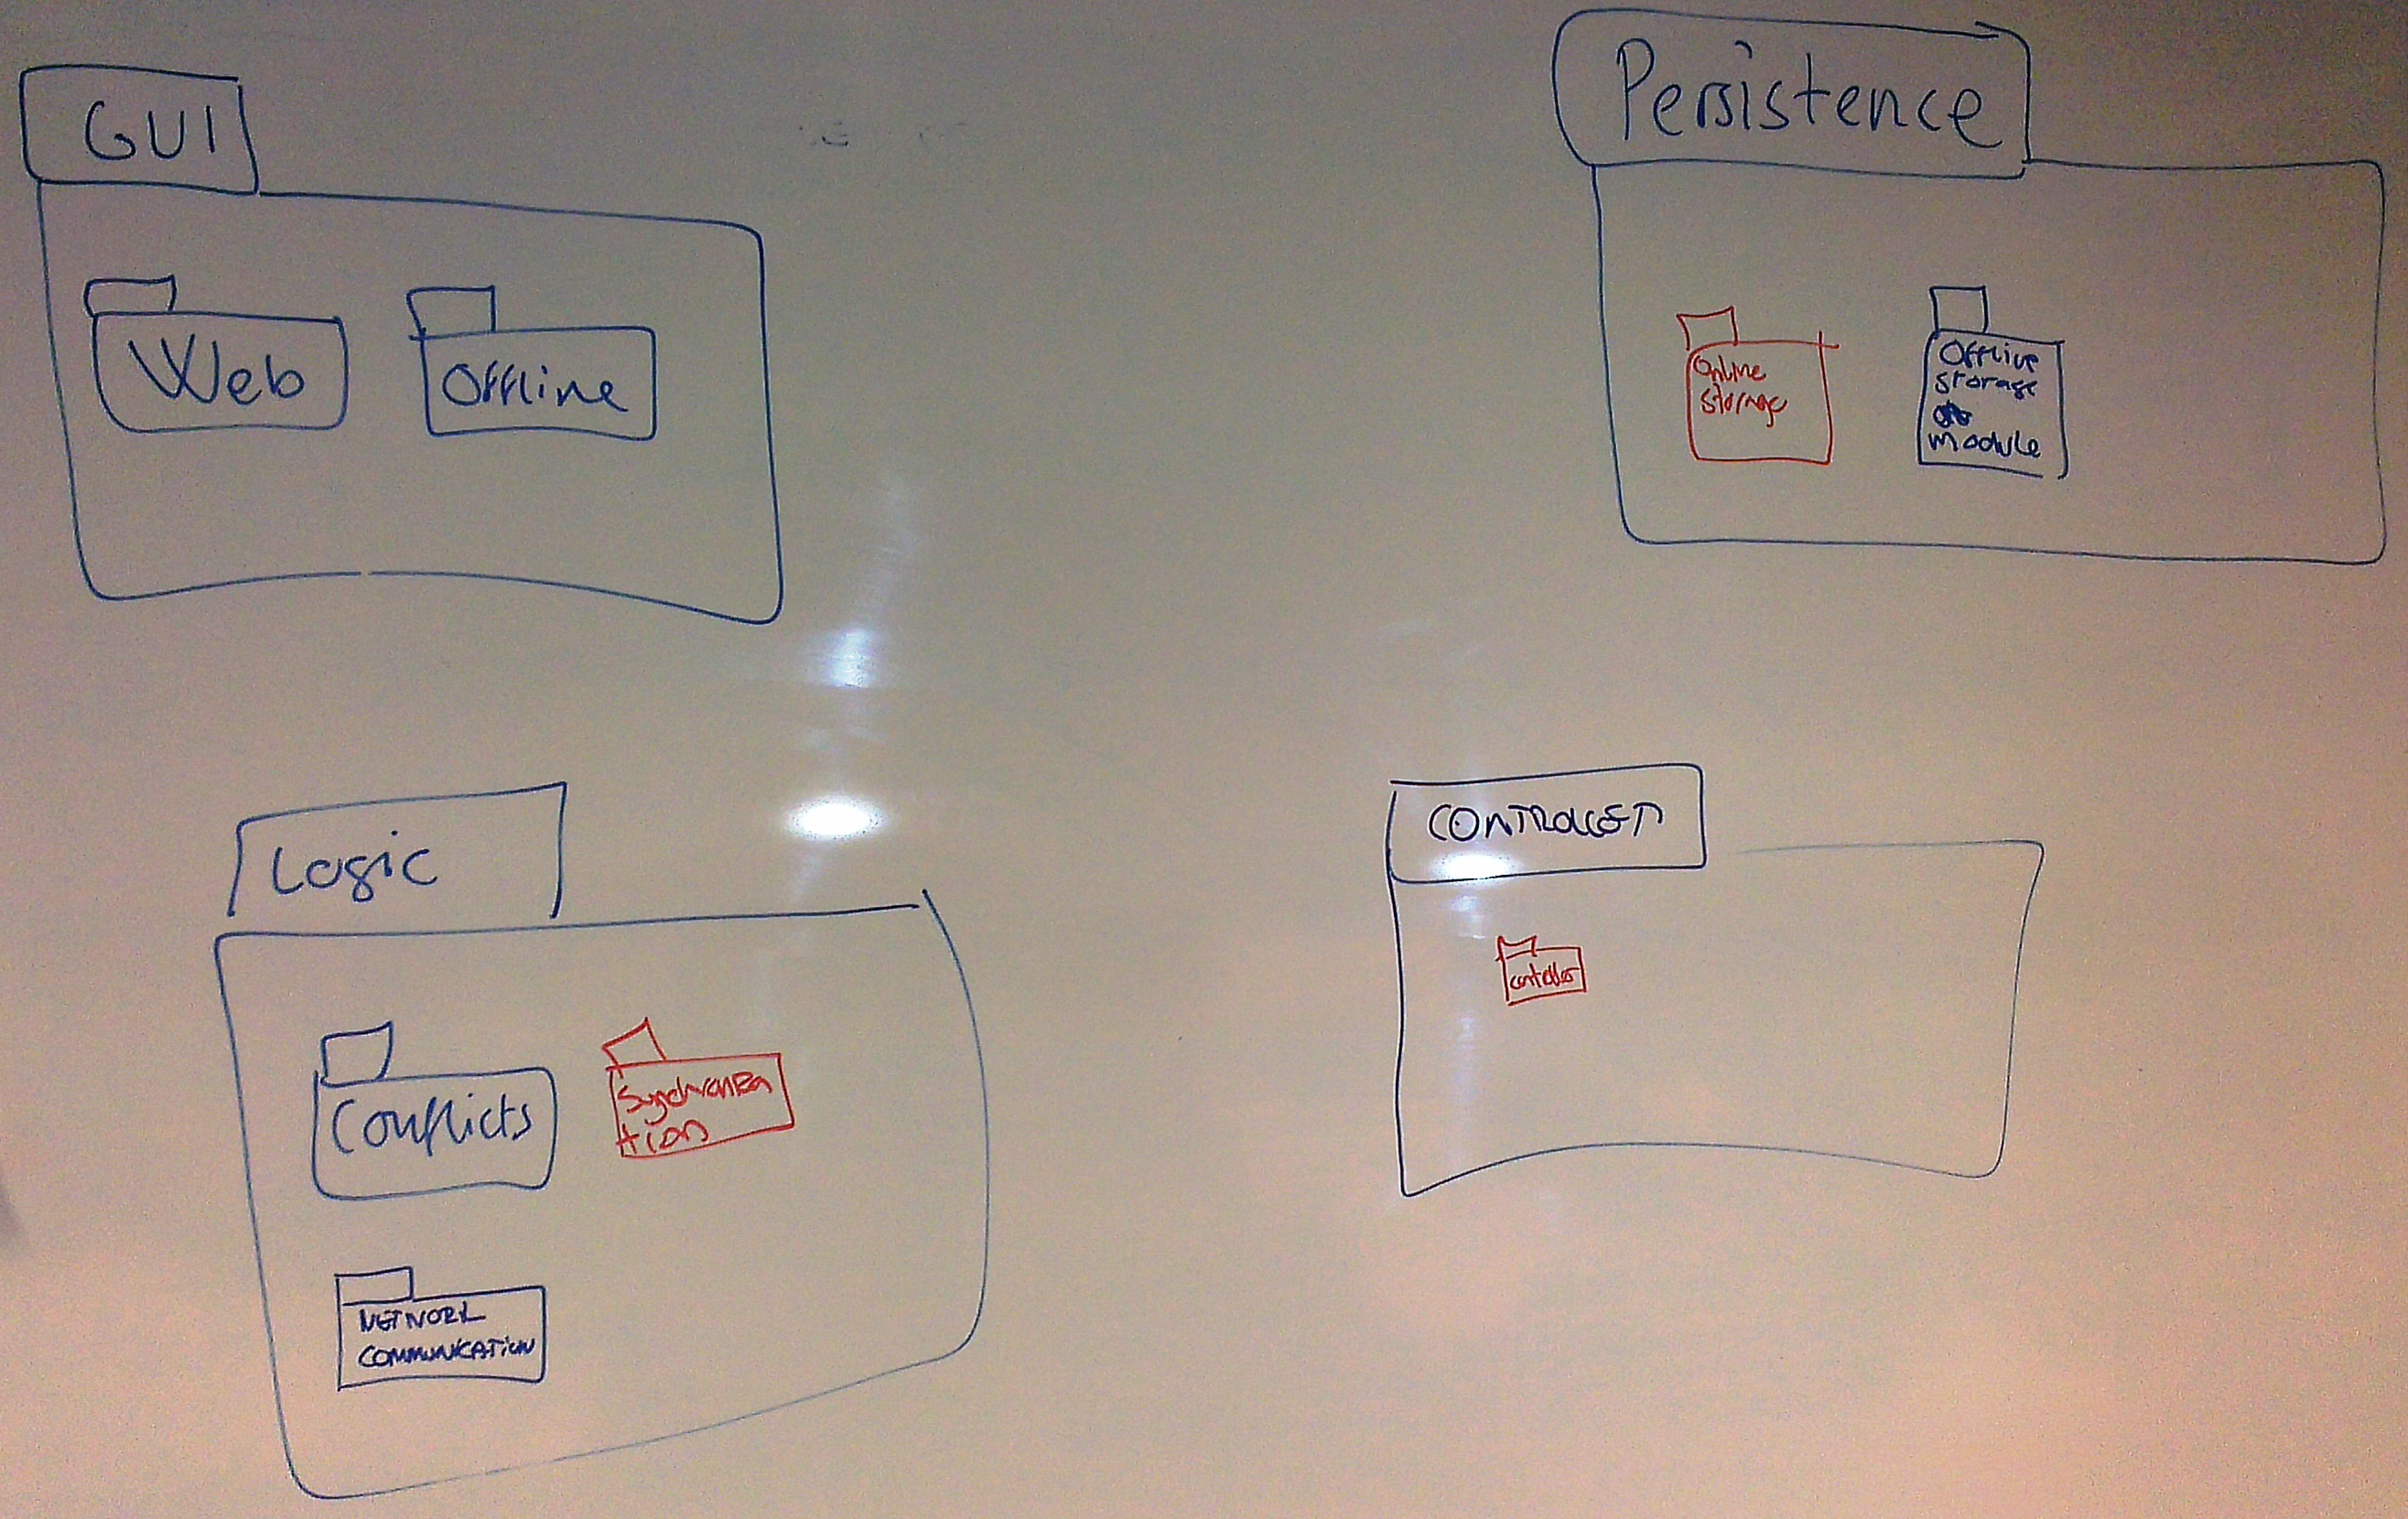 GUI
Web
Offline
Persistence
Online
storage
Offline
storage
module
Logic
Conflicts
Synchroniza
tion
NETWORK
COMMUNICATION
CONTROLLER
controller